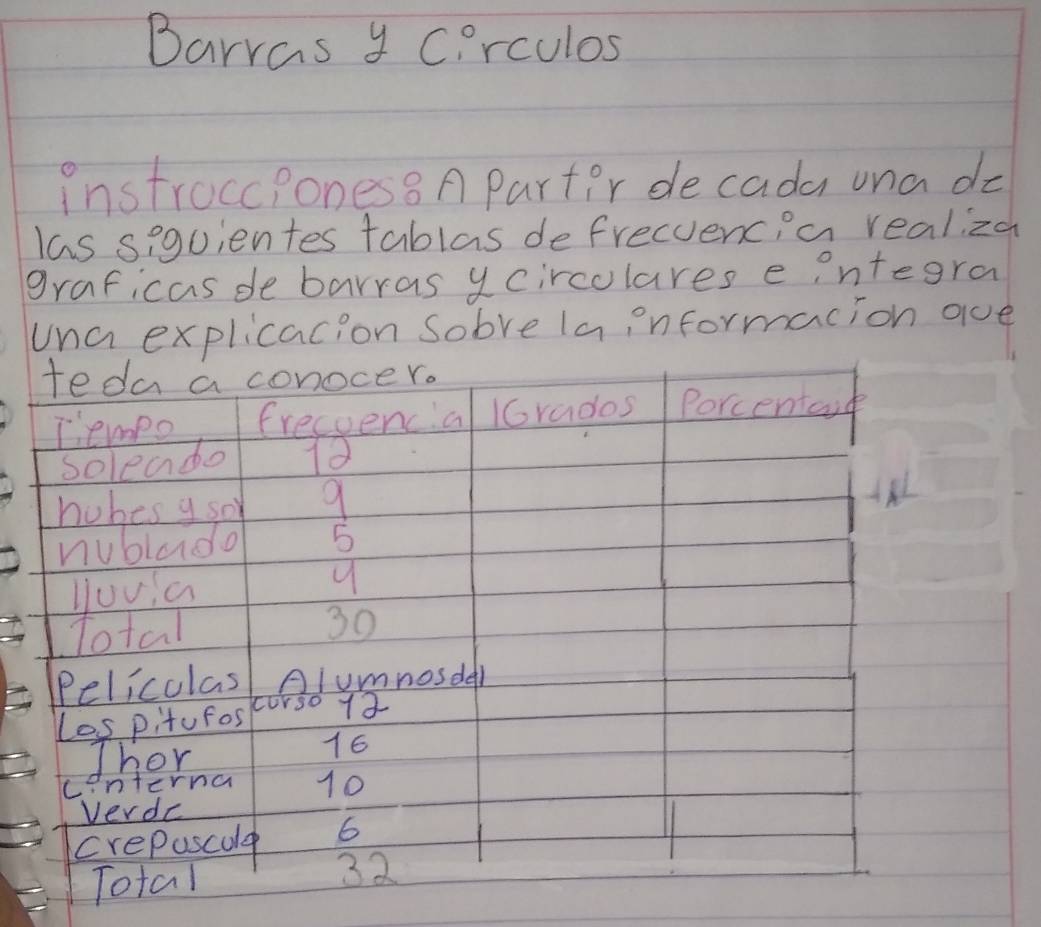 Barras y Circulos
instrucciones: A Partir de cada una de
las siguientes tablas de frecuencia realiza
graficas de barras y circulares e integra
una explicacion sobre la informacion que
teda a conocer.
Tiempo frecuencia Grados Porcentaje
soleado 12
nubes y sol 9
nublado 5
lluvia 4
Total 30
Peliculas Alumnos del curso
Los pitufos 12
Thor 16
Linterna Verde 10
crepusculo 6
Total 32